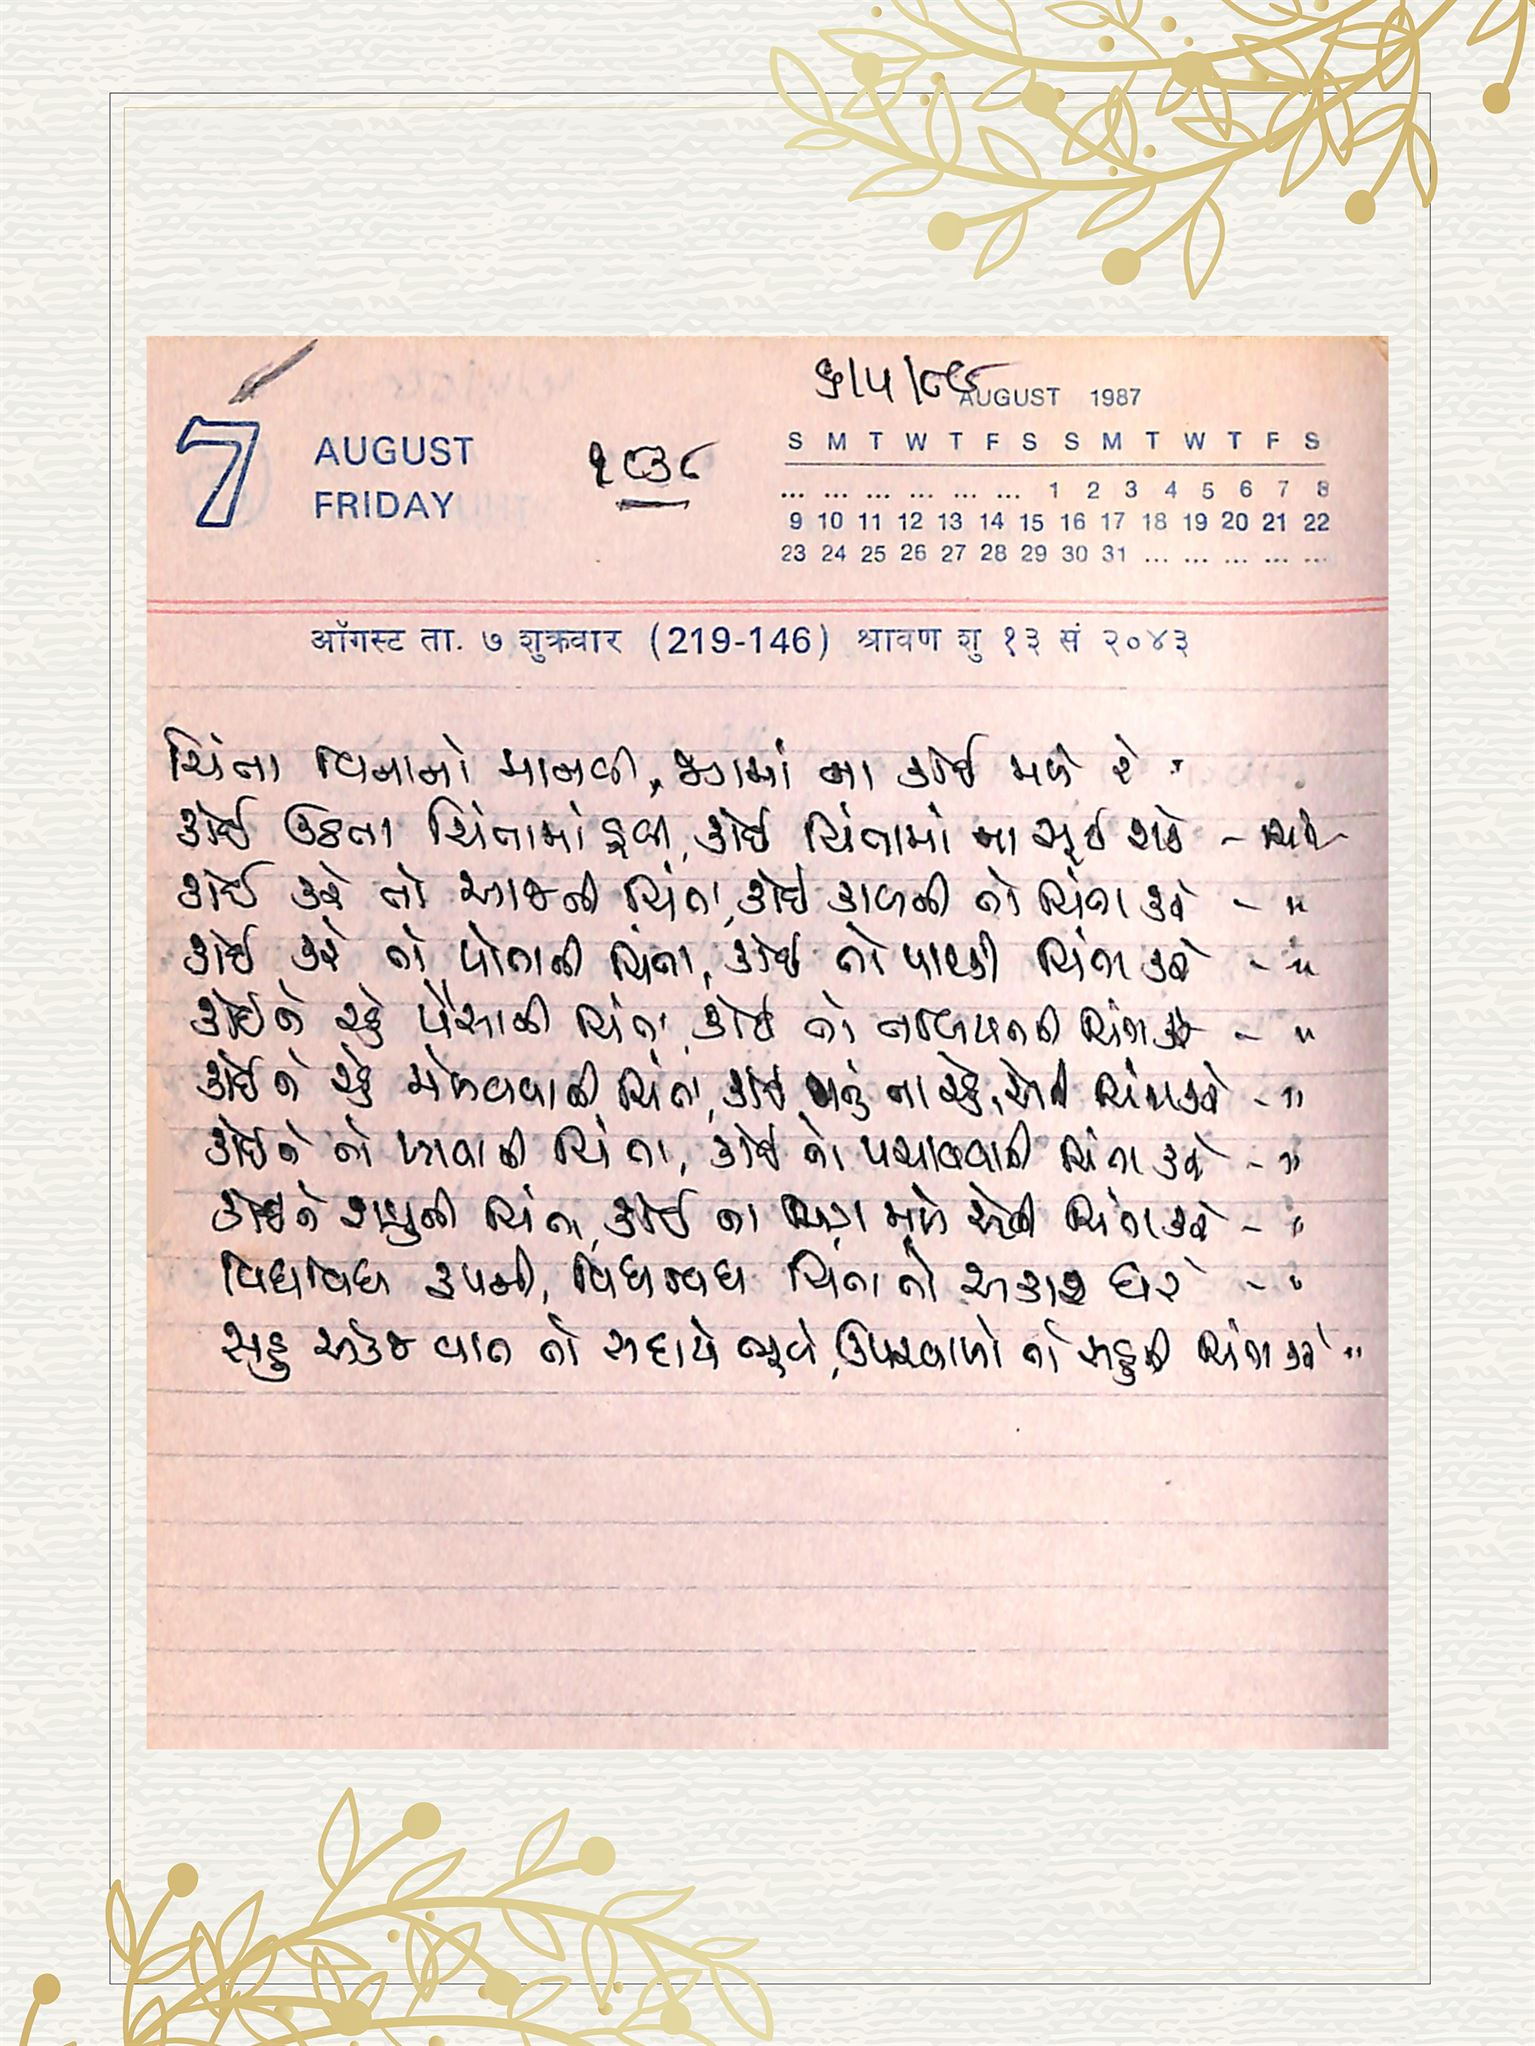 ૬/૫/૮૯
AUGUST 1987
7 AUGUST
FRIDAY
૧૮૩૮
S M T W T F S S M T W T F S
... ... ... ... ... ... 1 2 3 4 5 6 7 8
9 10 11 12 13 14 15 16 17 18 19 20 21 22
23 24 25 26 27 28 29 30 31 ... ... ... ... ...
ऑगस्ट ता. ७ शुक्रवार (219-146) श्रावण शु १३ सं २०४३
ચિંતા વિનાનો માનવી, જગમાં ના કોઈ મળે રે
કોઈ ઉઠતા ચિંતામાં ડૂબી, કોઈ ચિંતામાં ના સૂઈ શકે -
કોઈ કરે તો આજની ચિંતા, કોઈ કાળની તો ચિંતા કરે - "
કોઈ કરે તો પોતાની ચિંતા, કોઈ તો પારકી ચિંતા કરે - "
કોઈને રહે પૈસાની ચિંતા, કોઈ તો તબિયતની ચિંતા કરે - "
કોઈને રહે મેળવવાની ચિંતા, કોઈ ના રહે, એની ચિંતા કરે - "
કોઈને તો ખાવાની ચિંતા, કોઈ તો પચાવવાની ચિંતા કરે - "
કોઈને શત્રુની ચિંતા, કોઈ ના મિત્ર મળે એની ચિંતા કરે - "
વિધવિધ રૂપની, વિધવિધ ચિંતા તો આકાર ધરે - "
સહુ એકજ વાત તો સદાયે ભૂલે, ઉપરવાળો તો સહુની ચિંતા કરે "